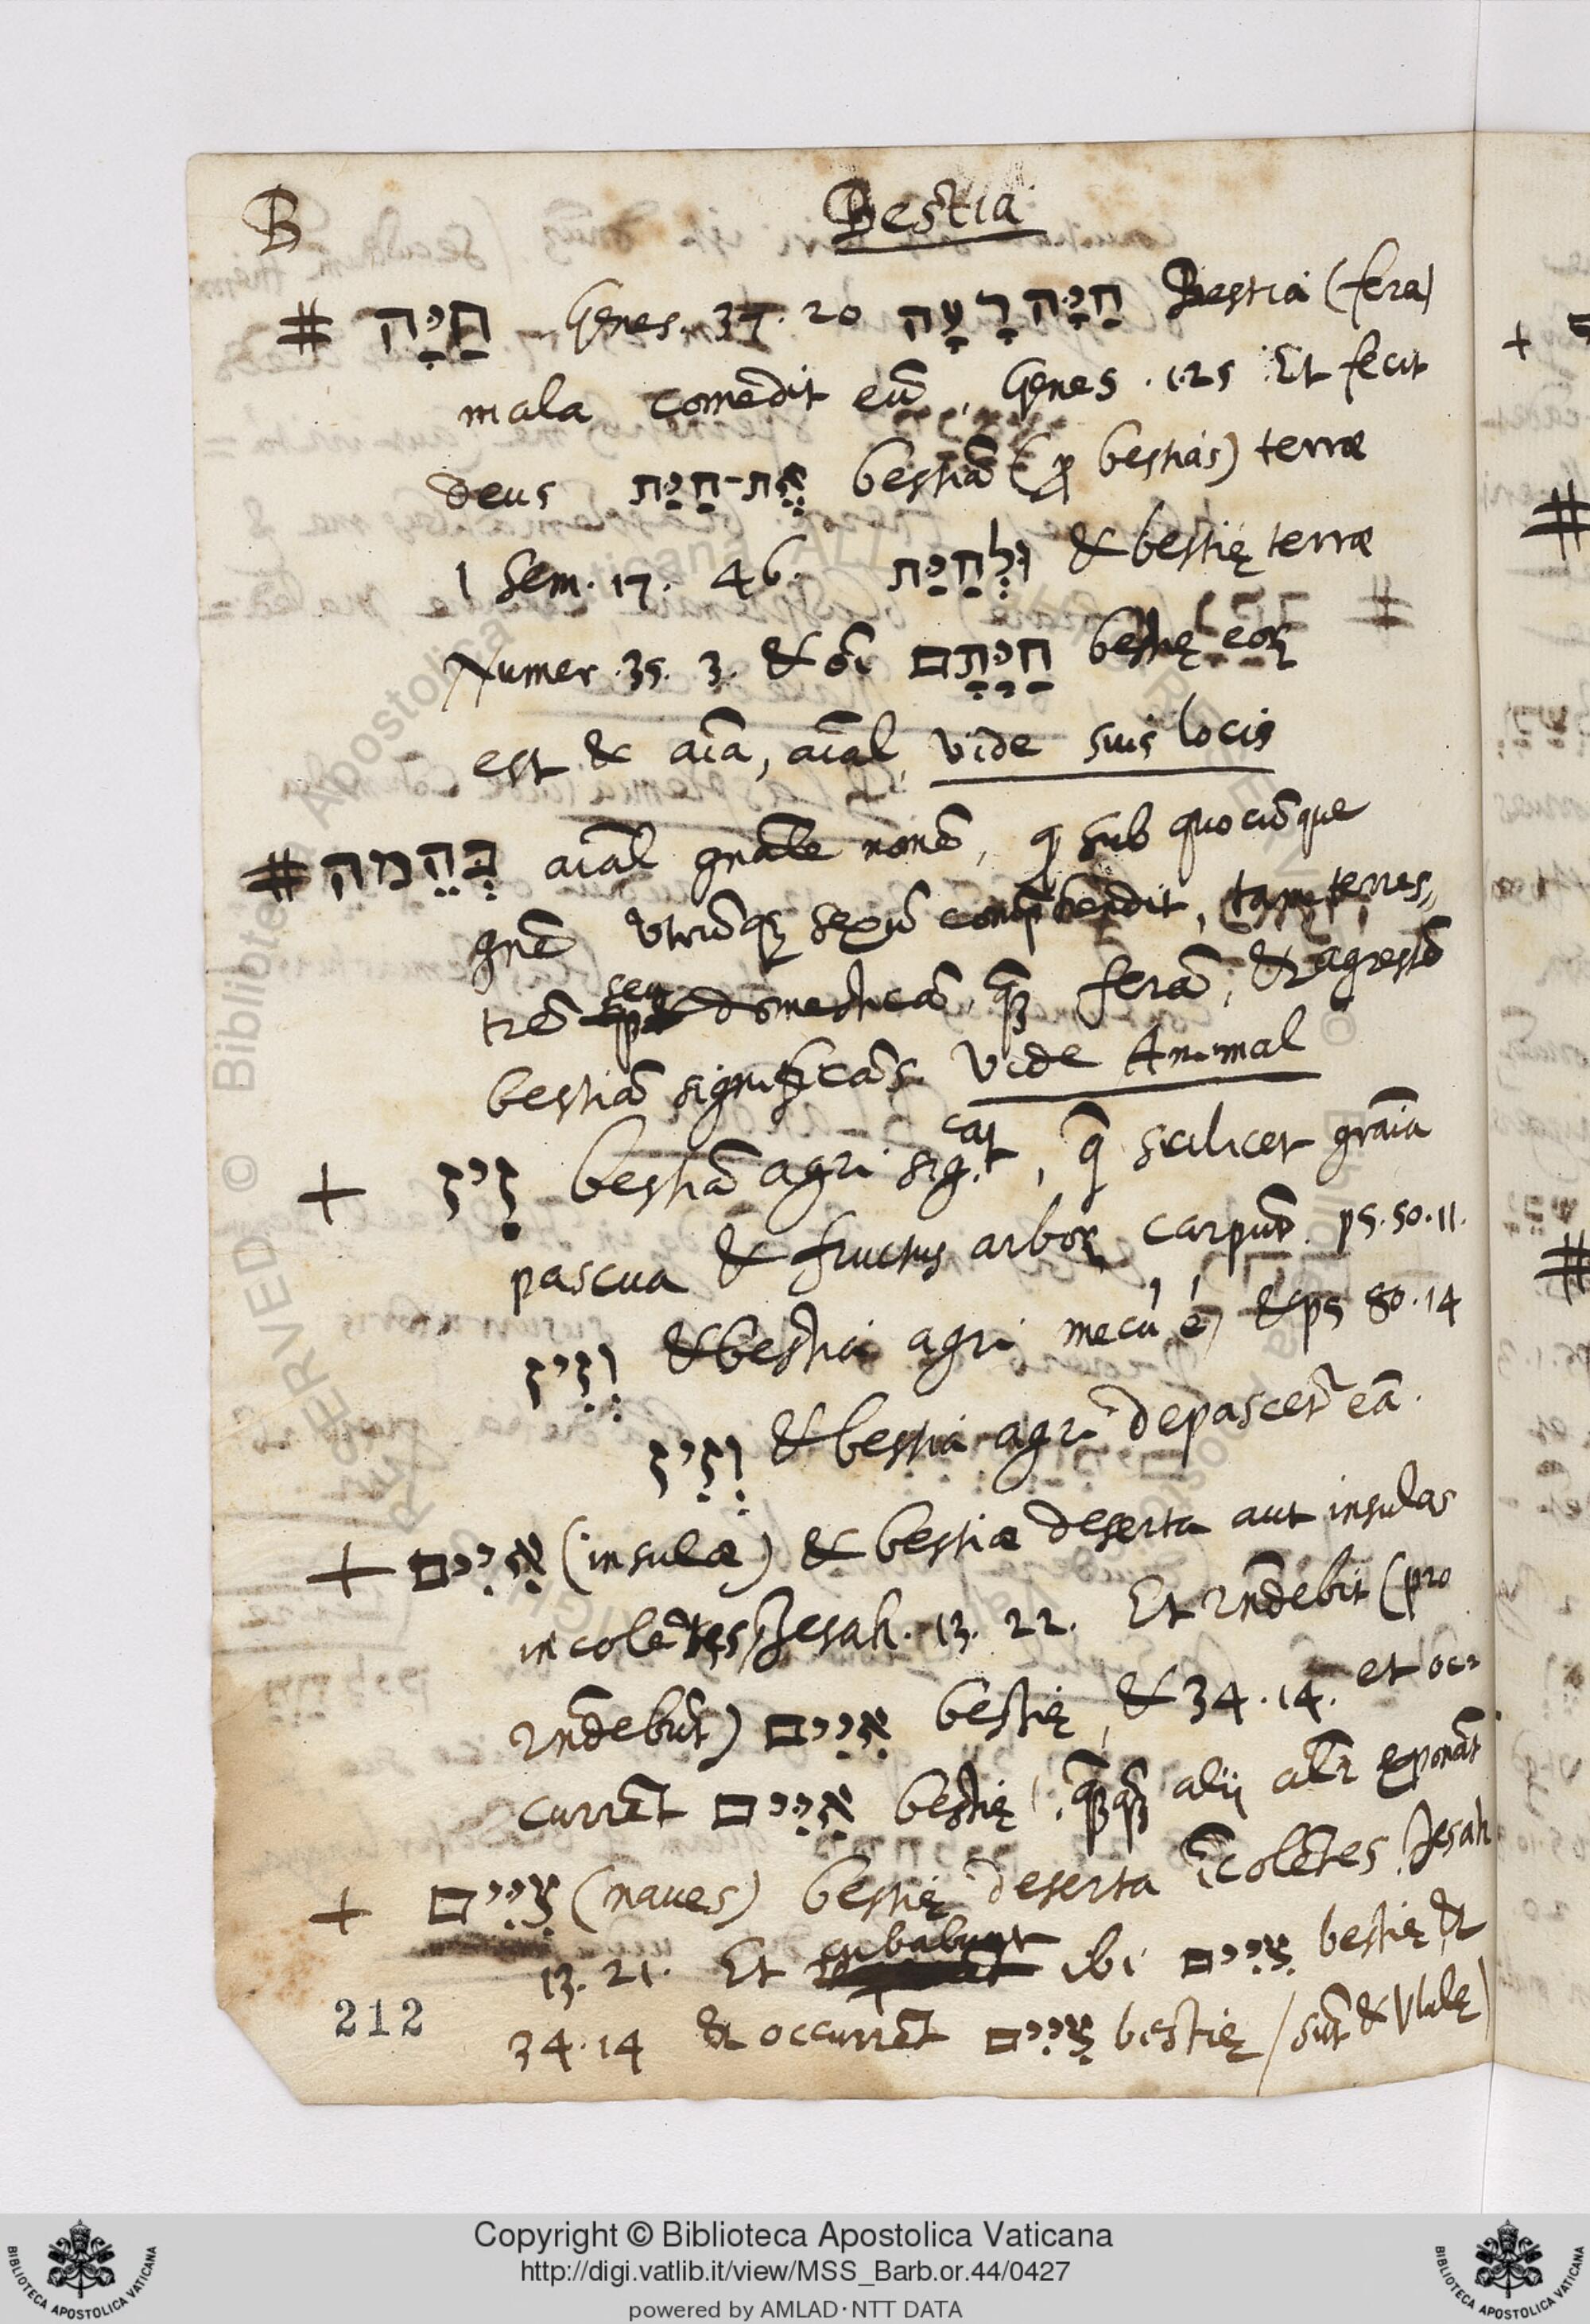 B
Bestia
# חַיָּה Genes. 37. 20 חַיָּה רָעָה Bestia (fera)
mala comedit eū, Genes . 1.25 Et fecit
deus אֶת-חַיַּת bestiā (ꝓ bestias) terræ
1 Sem. 17. 46. וּלְחַיַּת & bestię terræ
Numer. 35. 3. & ōi חַיָּתָם bestię eoꝝ
est & aīa, aīal, vide suis locis
# בְּהֵמה aīal gnāle nomē, ꝙ sub quocūque
gnē vtrūqꝫ sexū comp̄hendit, tam terres,,
trē seu domesticā, quā ferā, & agrestē
bestiā significās. Vide Animal
+ זִיז bestiā agri sig.cat, q̄ scilicet grāīa
pascua & fructus arboꝝ carpūt. ps. 50. 11.
וְזִיז & bestia agri mecū ē, & ps 80. 14
וְזִיז & bestia agri depascet eā.
+ אִיִּים (insulæ) & bestiæ deserta aut insulas
incolētes, Jesah. 13. 22. Et rn̄debit (pro
rn̄debūt) אִיִּים bestię, & 34. 14. et oc=
currēt אִיִּים bestię, quāquā alij alr̄ exponāt
+ צִיִּים (naues) bestię deserta īcolētes Jesah
13. 21. Et cubabunt ibi צִיִּים bestię &
34. 14 & occurrēt צִיִּים bestię / sūt & Vlulę)
212
Copyright © Biblioteca Apostolica Vaticana
http://digi.vatlib.it/view/MSS_Barb.or.44/0427
powered by AMLAD·NTT DATA
BIBLIOTECA APOSTOLICA VATICANA
BIBLIOTECA APOSTOLICA VATICANA